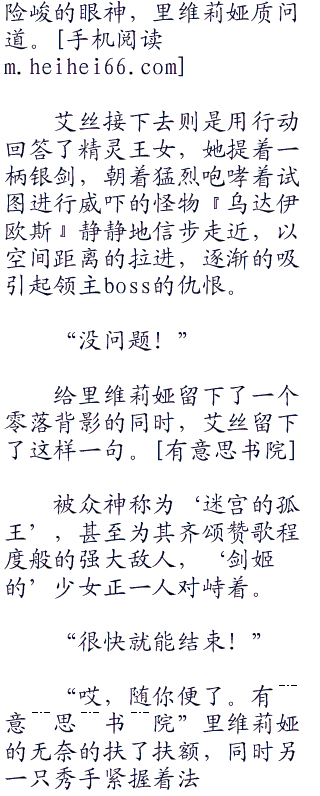 险峻的眼神，里维莉娅质问
道。[手机阅读
m.heihei66.com]
艾丝接下去则是用行动
回答了精灵王女，她提着一
柄银剑，朝着猛烈咆哮着试
图进行威吓的怪物『乌达伊
欧斯』静静地信步走近，以
空间距离的拉进，逐渐的吸
引起领主boss的仇恨。
“没问题！”
给里维莉娅留下了一个
零落背影的同时，艾丝留下
了这样一句。[有意思书院]
被众神称为‘迷宫的孤
王’，甚至为其齐颂赞歌程
度般的强大敌人，‘剑姬
的’少女正一人对峙着。
“很快就能结束！”
“哎，随你便了。有┈
意┈思┈书┈院”里维莉娅
的无奈的扶了扶额，同时另
一只秀手紧握着法